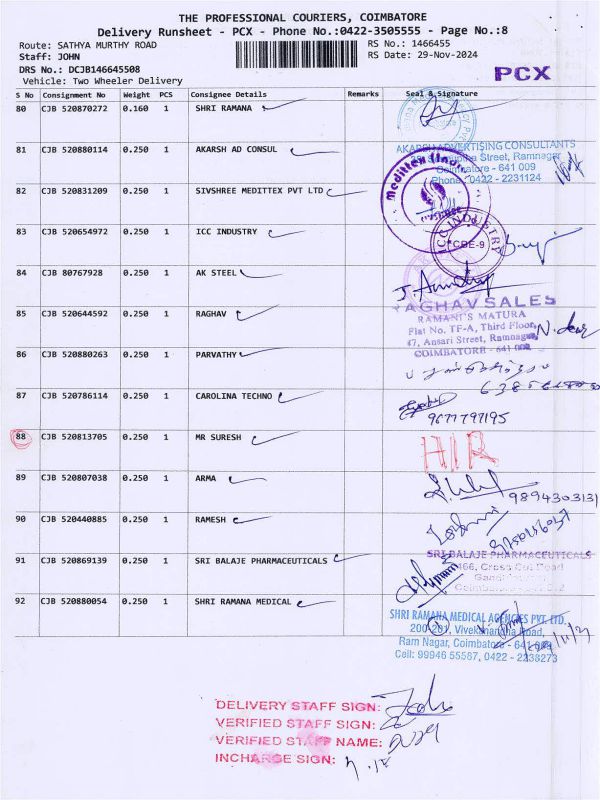 THE PROFESSIONAL COURIERS, COIMBATORE
Delivery Runsheet - PCX - Phone No.:0422-3505555 - Page No.:8
Route: SATHYA MURTHY ROAD RS No.: 1466455
Staff: JOHN RS Date: 29-Nov-2024
DRS No.: DCJB146645508
Vehicle: Two Wheeler Delivery
PCX
S No Consignment No Weight PCS Consignee Details Remarks Seal & Signature
80 CJB 520870272 0.160 1 SHRI RAMANA
81 CJB 520880114 0.250 1 AKARSH AD CONSUL
AKARSH ADVERTISING CONSULTANTS
Street, Ramnagar
Coimbatore - 641 009
Phone: 0422 - 2231124
82 CJB 520831209 0.250 1 SIVSHREE MEDITTEX PVT LTD
Medittex (India)
83 CJB 520654972 0.250 1 ICC INDUSTRY
ICC INDUSTRY
CBE-9
84 CJB 80767928 0.250 1 AK STEEL
85 CJB 520644592 0.250 1 RAGHAV
RAGHAV SALES
RAMANI'S MATURA
Flat No. TF-A, Third Floor,
47, Ansari Street, Ramnagar,
COIMBATORE - 641 009
86 CJB 520880263 0.250 1 PARVATHY
87 CJB 520786114 0.250 1 CAROLINA TECHNO
9677797195
88 CJB 520813705 0.250 1 MR SURESH
89 CJB 520807038 0.250 1 ARMA
9894303131
90 CJB 520440885 0.250 1 RAMESH
91 CJB 520869139 0.250 1 SRI BALAJE PHARMACEUTICALS
SRI BALAJE PHARMACEUTICALS
466, Cross Cut Road
92 CJB 520880054 0.250 1 SHRI RAMANA MEDICAL
SHRI RAMANA MEDICAL AGENCIES PVT. LTD.
200-201, Vivekananda Road,
Ram Nagar, Coimbatore - 641 009
Cell: 99946 55567, 0422 - 2238273
DELIVERY STAFF SIGN:
VERIFIED STAFF SIGN:
VERIFIED STAFF NAME:
INCHARGE SIGN: